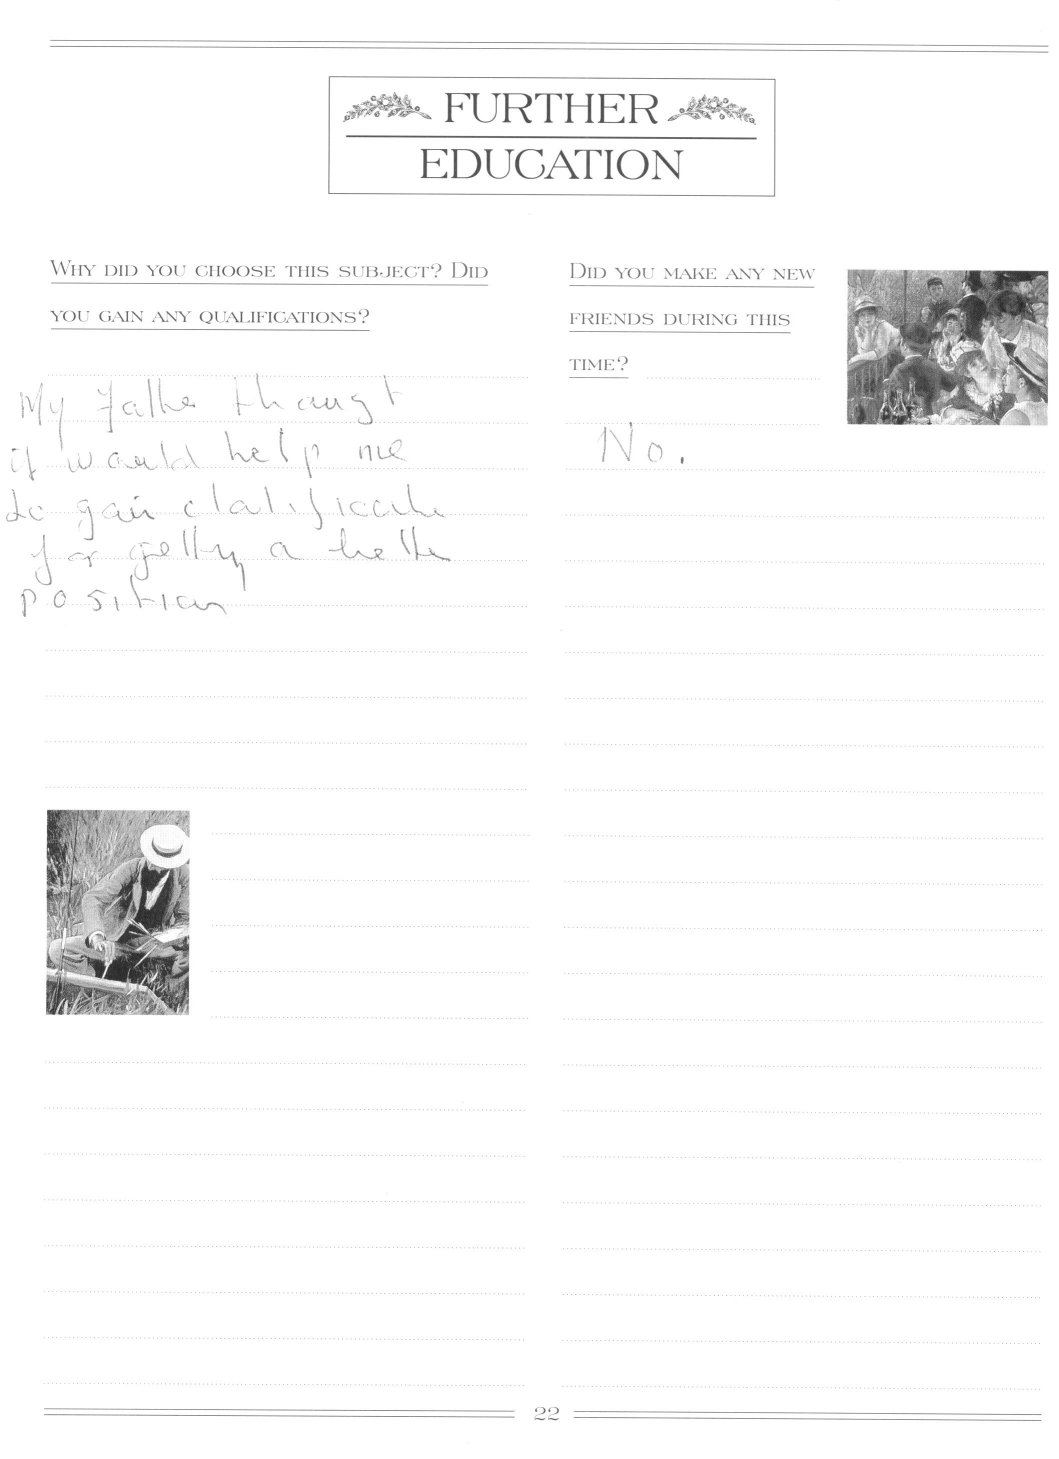 FURTHER
EDUCATION
WHY DID YOU CHOOSE THIS SUBJECT? DID
YOU GAIN ANY QUALIFICATIONS?
My Father thaugt
it would help me
to gain
for getting a better
position
DID YOU MAKE ANY NEW
FRIENDS DURING THIS
TIME?
No.
22